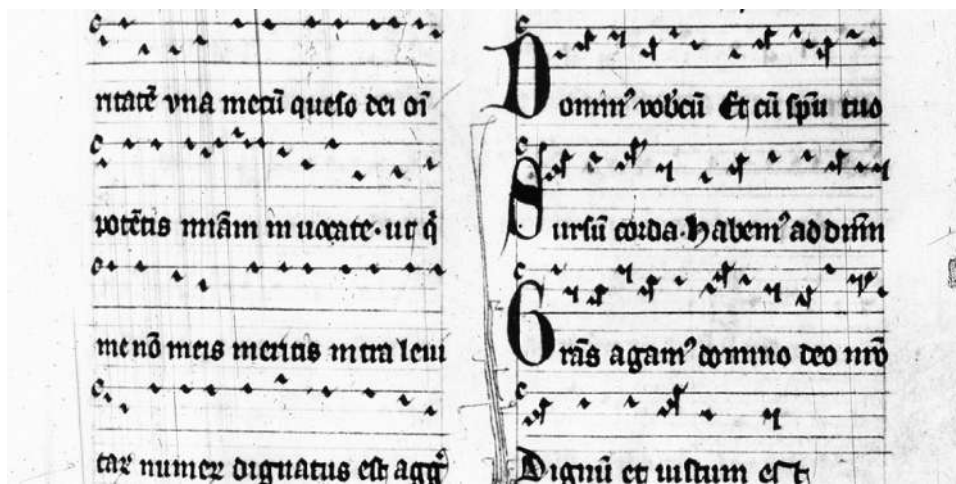 ritatē vna mecū queso dei oī
potētis mīam in uocate · ut q̄
me nō meis meritis intra leui
taꝝ numeꝝ dignatus est agg̃
Domin⁹ vobcū Et cū spū tuo
Sursū corda · Habem⁹ ad dnm
Gras agam⁹ domino deo nro
Dignū et iustum est